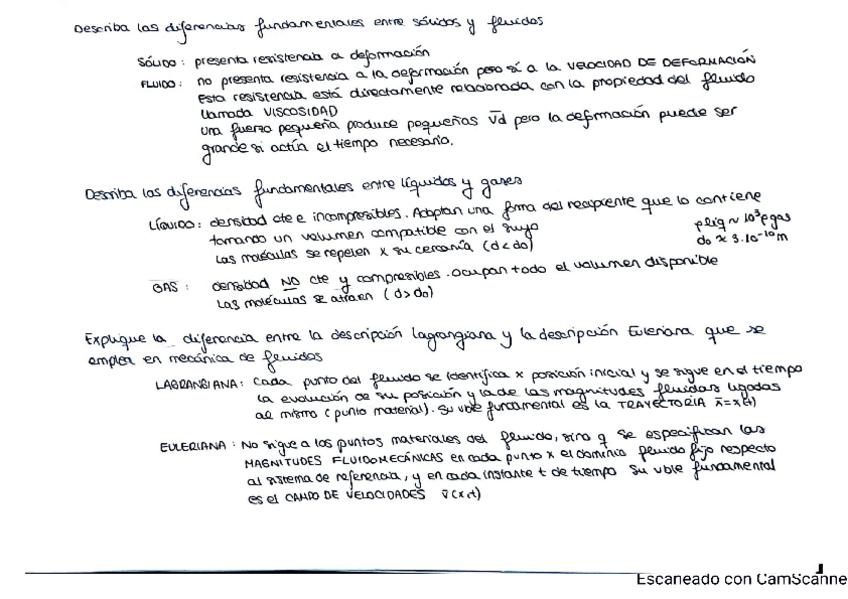 Describa las diferencias fundamentales entre sólidos y fluidos
SÓLIDO: presenta resistencia a deformación
FLUIDO: no presenta resistencia a la deformación pero sí a la VELOCIDAD DE DEFORMACIÓN
Esta resistencia está directamente relacionada con la propiedad del fluido
llamada VISCOSIDAD
Una fuerza pequeña produce pequeñas v̄d pero la deformación puede ser
grande si actúa el tiempo necesario.
Describa las diferencias fundamentales entre líquidos y gases
LÍQUIDO: densidad cte e incompresibles. Adoptan una forma del recipiente que lo contiene
tomando un volumen compatible con el suyo
Las moléculas se repelen x su cercanía (d<do)
ρliq ~ 10³ρgas
do ≈ 3·10⁻¹⁰m
GAS: densidad NO cte y compresibles. Ocupan todo el volumen disponible
Las moléculas se atraen (d>do)
Explique la diferencia entre la descripción Lagrangiana y la descripción Euleriana que se
emplea en mecánica de fluidos
LAGRANGIANA: Cada punto del fluido se identifica x posición inicial y se sigue en el tiempo
la evolución de su posición y la de las magnitudes fluidas ligadas
al mismo (punto material). Su vble fundamental es la TRAYECTORIA x̄=x(t)
EULERIANA: No sigue a los puntos materiales del fluido, sino q se especifican las
MAGNITUDES FLUIDOMECÁNICAS en cada punto x el dominio fluido fijo respecto
al sistema de referencia, y en cada instante t de tiempo Su vble fundamental
es el CAMPO DE VELOCIDADES v̄(x,t)
Escaneado con CamScanne